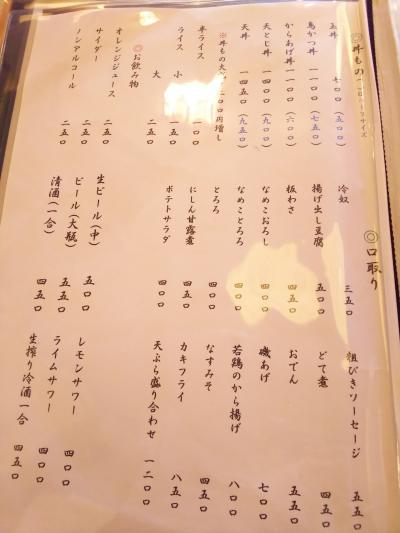 ◎丼もの
玉丼 七〇〇(五〇〇)
鳥かつ丼 一一〇〇(七五〇)
からあげ丼 一一〇〇(六〇〇)
天とじ丼 一一四〇(九〇〇)
天丼 一一四五〇(九五〇)
半ライス 一〇〇
ライス 小 一五〇
大 二五〇
◎お飲み物
オレンジジュース 二五〇
サイダー 二五〇
ノンアルコール 二五〇
◎口取り
冷奴 三五〇
揚げ出し豆腐 五〇〇
板わさ 四五〇
なめこおろし 四〇〇
なめことろろ 四〇〇
とろろ 四〇〇
にしん甘露煮 四五〇
ポテトサラダ 四〇〇
生ビール(中) 五〇〇
ビール(大瓶) 五五〇
清酒(一合) 四五〇
粗びきソーセージ 五五〇
どて煮 四五〇
おでん 五五〇
磯あげ 七〇〇
若鶏のから揚げ 八〇〇
なすみそ 四五〇
カキフライ 八五〇
天ぷら盛り合わせ 一二〇〇
レモンサワー 四〇〇
ライムサワー 四〇〇
生搾り冷酒一合 四五〇